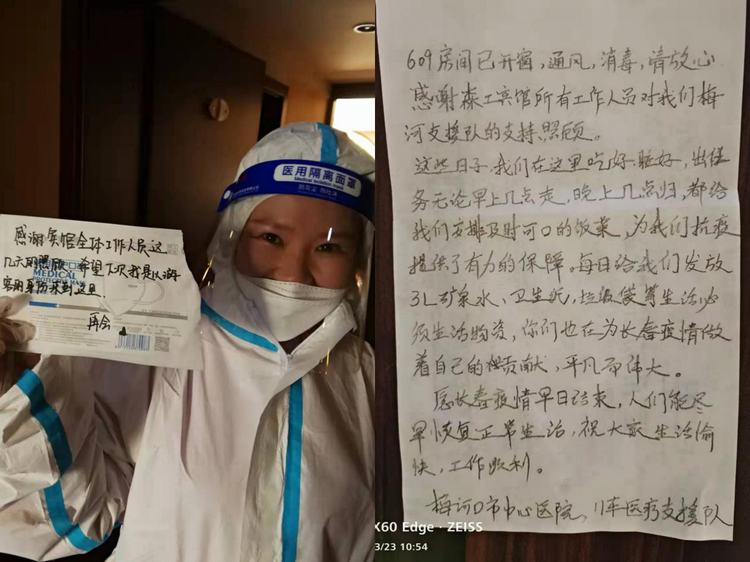 医用隔离面罩
Medical isolation mask
感谢宾馆全体工作人员这
几天的照顾 希望下次我是以游
客的身份来到这里
再会
MEDICAL
609房间已开窗,通风,消毒,请放心
感谢森工宾馆所有工作人员对我们梅
河支援队的支持照顾。
这些日子,我们在这里吃好、睡好,出任
务无论早上几点走,晚上几点归,都给
我们安排及时可口的饭菜,为我们抗疫
提供了有力的保障。每日给我们发放
矿泉水、卫生纸,垃圾袋等生活必
须生活物资,你们也在为长春疫情做
着自己的贡献,平凡而伟大。
愿长春疫情早日结束,人们能尽
早恢复正常生活,祝大家生活愉
快,工作顺利。
梅河口市中心医院,医疗支援队
X60 Edge · ZEISS
3/23 10:54